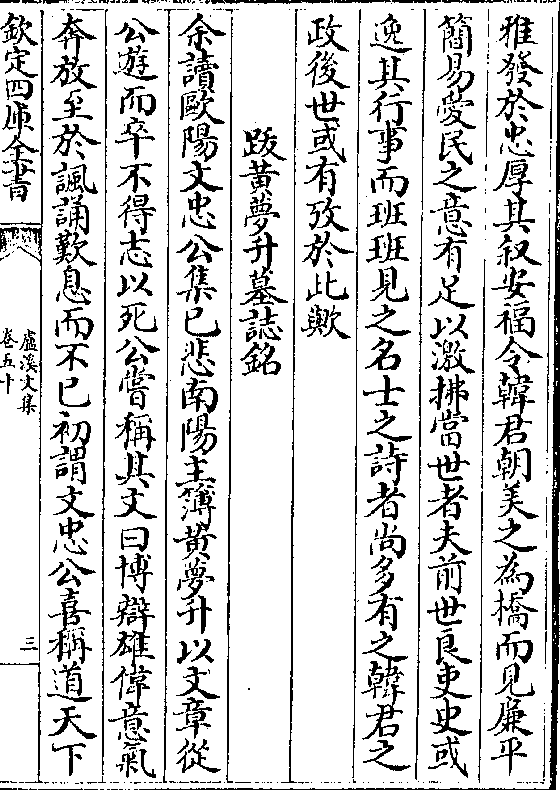 雅發於忠厚其叙安福令韓君朝美之為橋而見廉平
簡易愛民之意有足以激拂當世者夫前世良吏史或
逸其行事而班班見之名士之詩者尚多有之韓君之
政後世或有攷於此歟
跋黄夢升墓誌銘
余讀歐陽文忠公集已悲南陽主簿黄夢升以文章從
公遊而卒不得志以死公嘗稱其文曰博辯雄偉意氣
奔放至於諷誦歎息而不已初謂文忠公喜稱道天下
欽定四庫全書
盧溪文集
卷五十
三